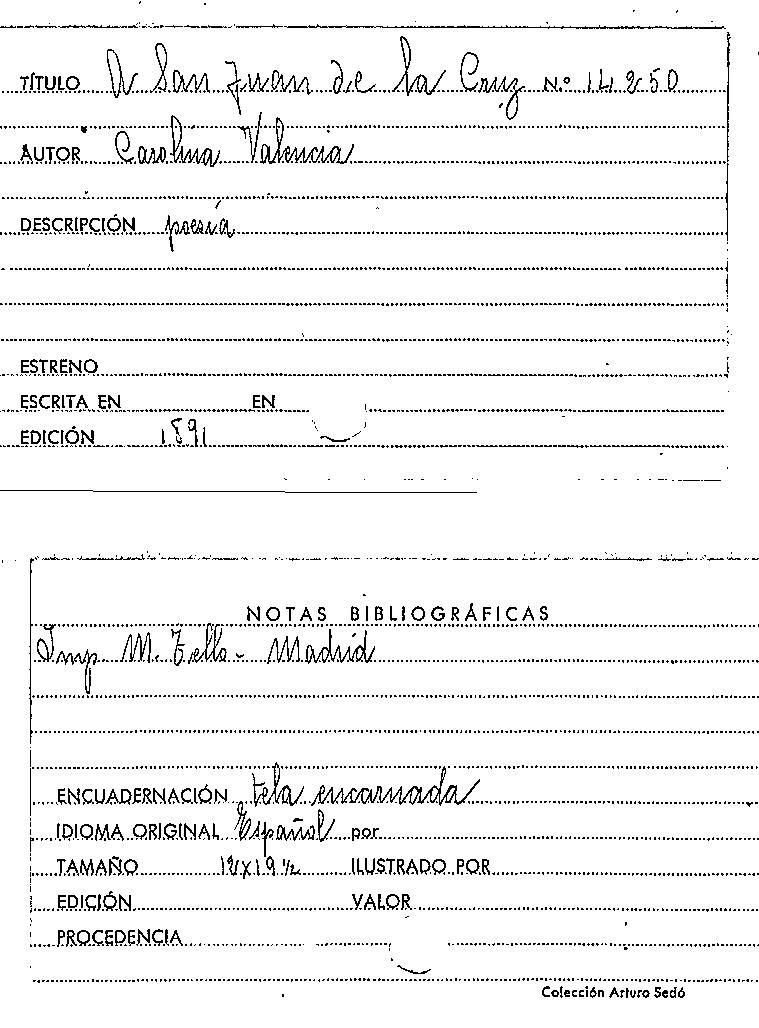 TÍTULO A San Juan de la Cruz Nº 14250
AUTOR Carolina Valencia
DESCRIPCIÓN poesía
ESTRENO
ESCRITA EN EN
EDICIÓN 1891
NOTAS BIBLIOGRÁFICAS
Imp. M. Tello - Madrid
ENCUADERNACIÓN tela encarnada
IDIOMA ORIGINAL Español por
TAMAÑO 12x19 ½ ILUSTRADO POR
EDICIÓN VALOR
PROCEDENCIA
Colección Arturo Sedó